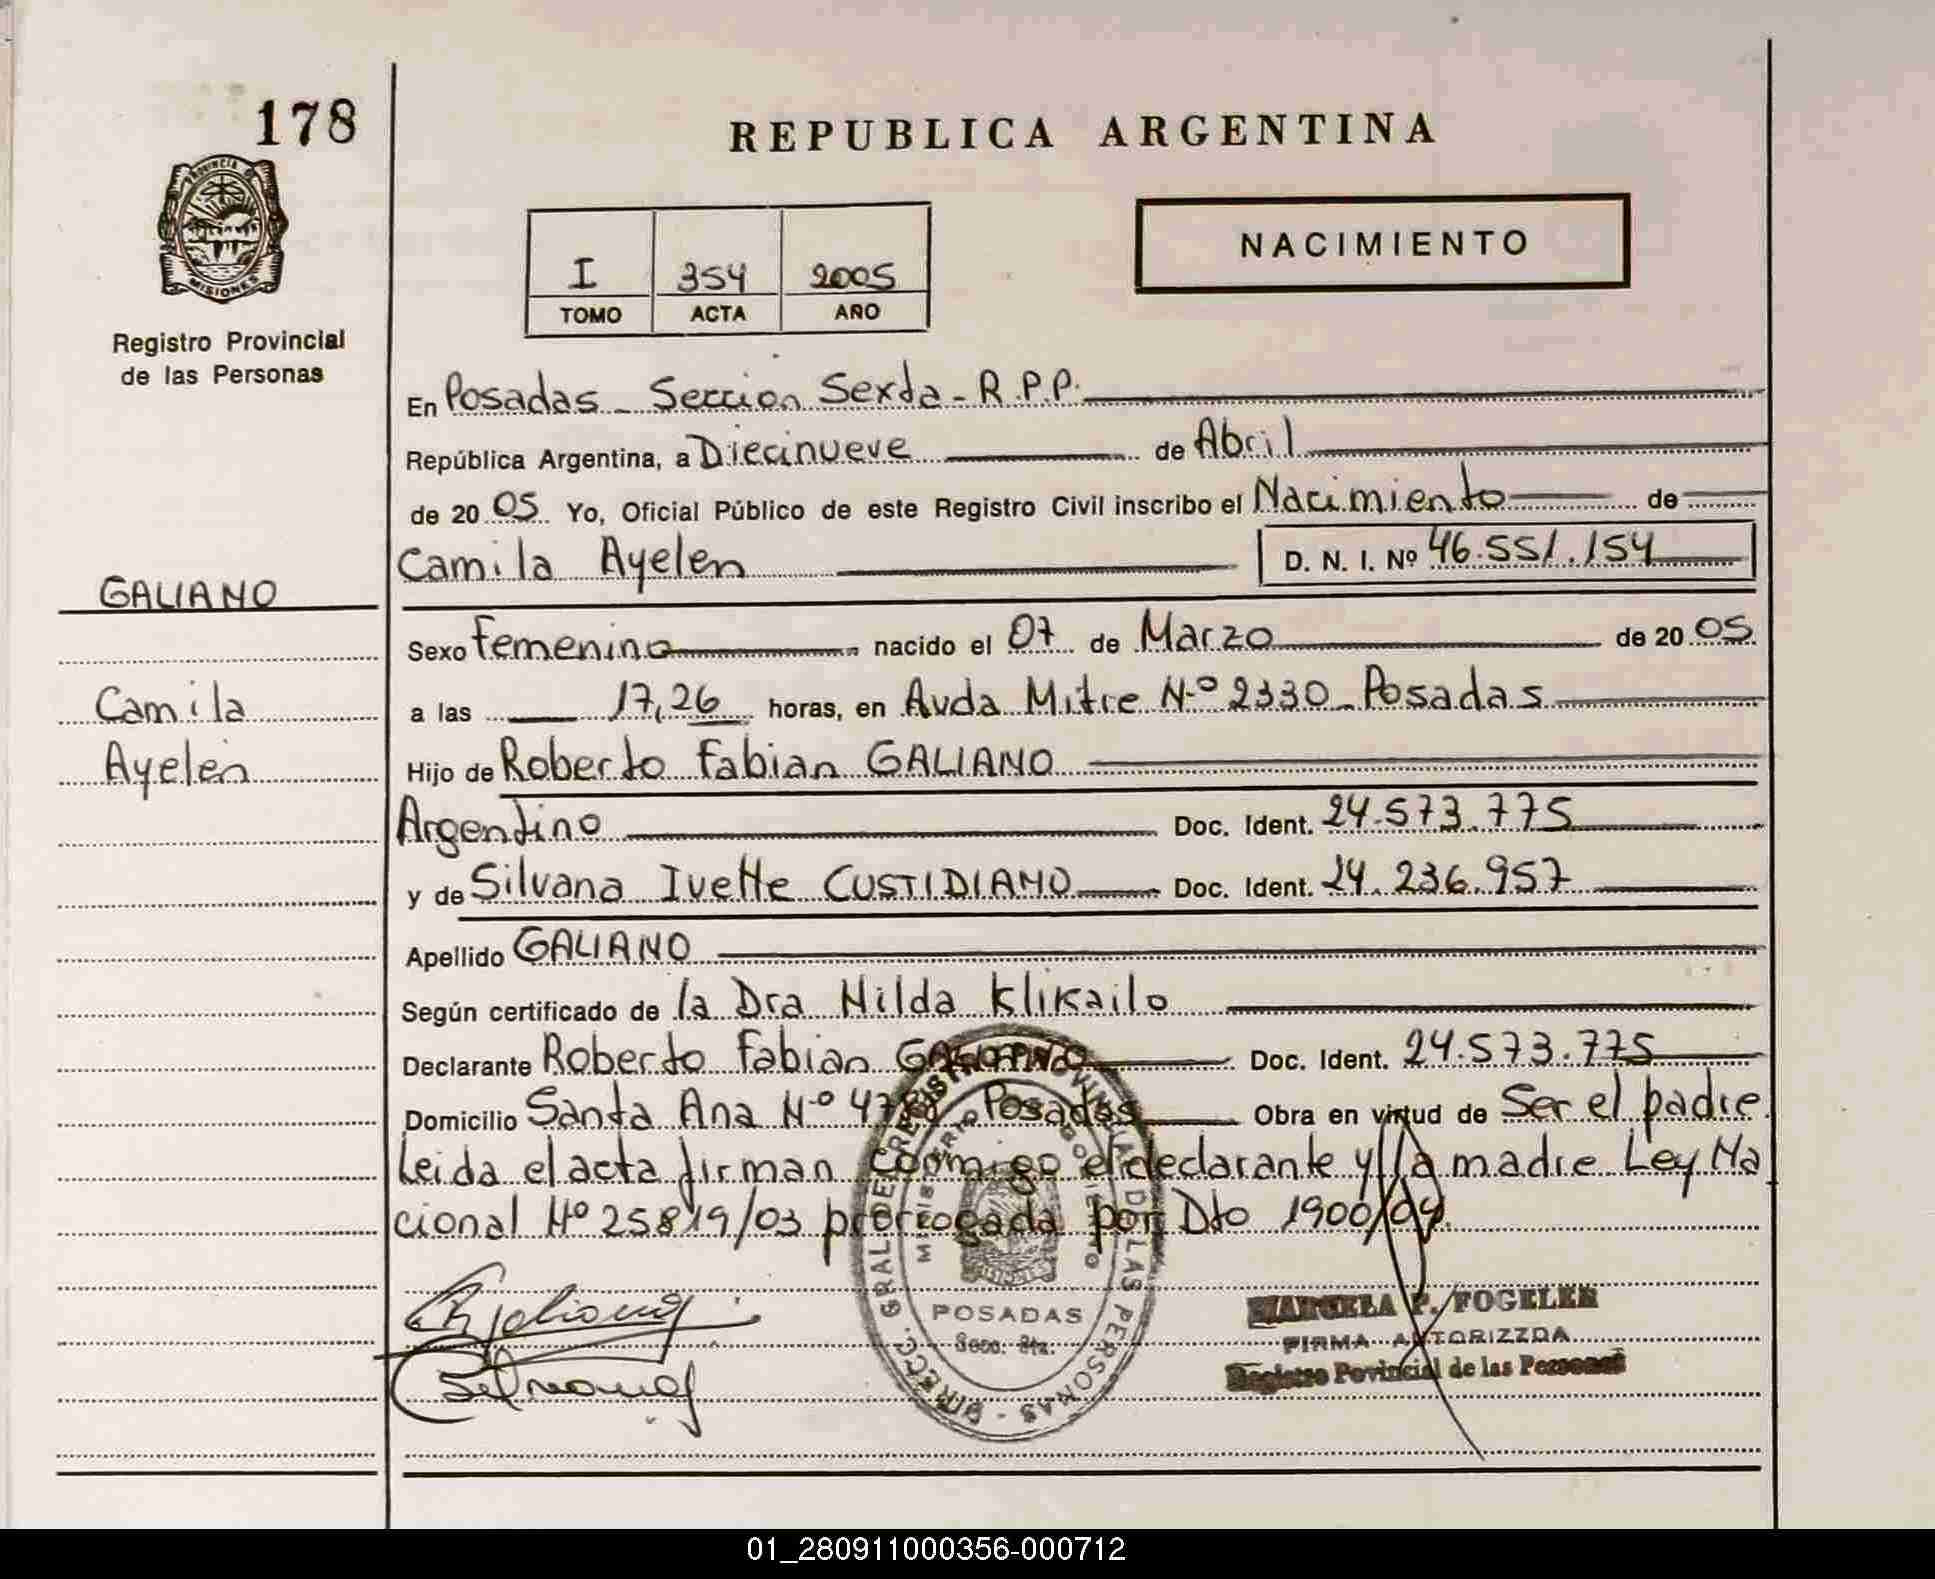 178
REPUBLICA ARGENTINA
PROVINCIA DE
MISIONES
Registro Provincial
de las Personas
I 354 2005
TOMO ACTA AÑO
NACIMIENTO
En Posadas - Seccion Sexta - R.P.P.
República Argentina, a Diecinueve de Abril
de 2005 Yo, Oficial Público de este Registro Civil inscribo el Nacimiento de
Camila Ayelen D. N. I. Nº 46.551.154
GALIANO
Camila
Ayelen
Sexo Femenino nacido el 07 de Marzo de 2005
a las 17,26 horas, en Avda Mitre Nº 2330 - Posadas
Hijo de Roberto Fabian GALIANO
Argentino Doc. Ident. 24.573.775
y de Silvana Ivette CUSTIDIANO Doc. Ident. 24.236.957
Apellido GALIANO
Según certificado de la Dra Nilda Klikailo
Declarante Roberto Fabian GALIANO Doc. Ident. 24.573.775
Domicilio Santa Ana Nº Posadas Obra en virtud de Ser el padre
Leida el acta firman conmigo el declarante y la madre Ley Na
cional Nº 25819/03 prorrogada por Dto 1900/04.
DIRECC. GRAL DEL REGISTRO PROVINCIAL DE LAS PERSONAS
MINISTERIO DE GOBIERNO
POSADAS
Secc. 6ta.
MARCELA P. FOGELER
FIRMA AUTORIZZDA
Registro Povincial de las Personas
01_280911000356-000712